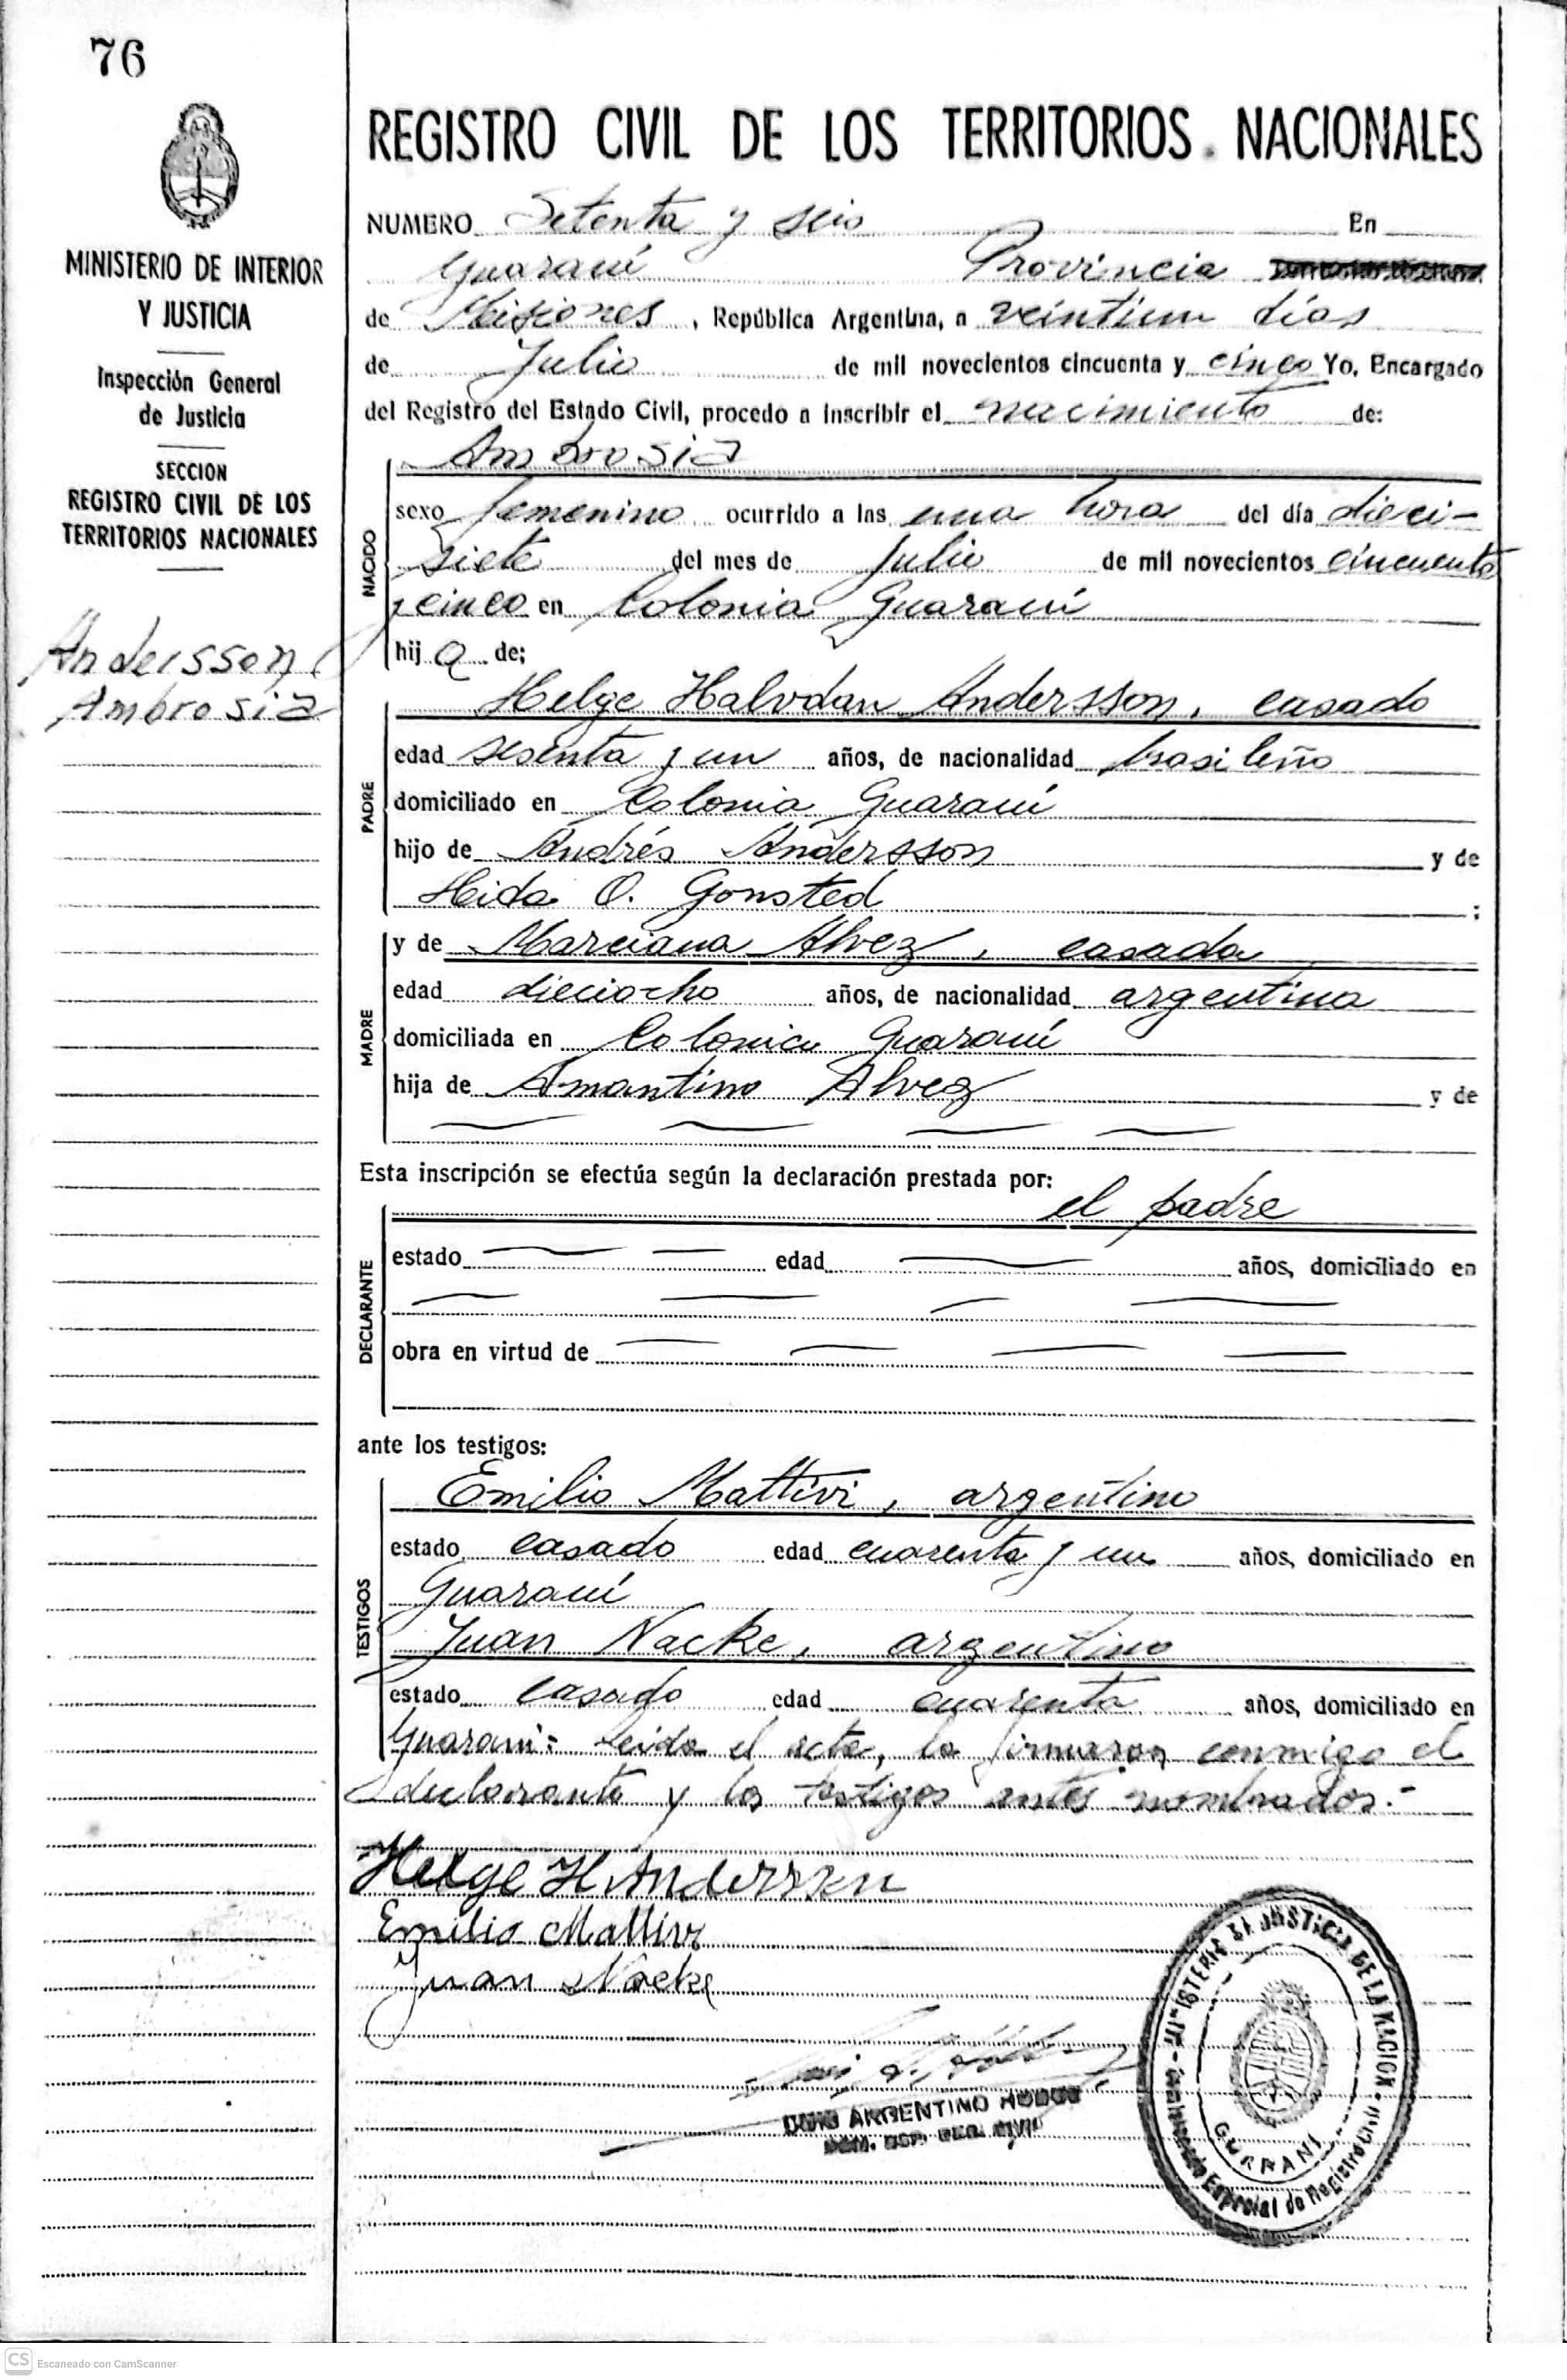 76
MINISTERIO DE INTERIOR
Y JUSTICIA
Inspección General
de Justicia
SECCION
REGISTRO CIVIL DE LOS
TERRITORIOS NACIONALES
Andersson,
Ambrosia
REGISTRO CIVIL DE LOS TERRITORIOS NACIONALES
NUMERO Setenta y seis En
Guaraní Provincia
de Misiones, República Argentina, a veintiun días
de Julio de mil novecientos cincuenta y cinco Yo, Encargado
del Registro del Estado Civil, procedo a inscribir el nacimiento de:
Ambrosia
NACIDO
sexo femenino ocurrido a las una hora del día dieci-
siete del mes de Julio de mil novecientos cincuenta
y cinco en Colonia Guaraní
hija de;
PADRE
Helge Halvdan Andersson, casado
edad sesenta y un años, de nacionalidad brasileño
domiciliado en Colonia Guaraní
hijo de Andrés Andersson y de
Hida O. Gonsted;
MADRE
y de Marciana Alvez, casada
edad dieciocho años, de nacionalidad argentina
domiciliada en Colonia Guaraní
hija de Amantino Alvez y de
Esta inscripción se efectúa según la declaración prestada por:
el padre
DECLARANTE
estado edad años, domiciliado en
obra en virtud de
ante los testigos:
TESTIGOS
Emilio Mattivi, argentino
estado casado edad cuarenta y un años, domiciliado en
Guaraní
Juan Nacke, argentino
estado casado edad cuarenta años, domiciliado en
Guaraní: leida el acta, la firmaron conmigo el
declarante y los testigos antes nombrados.-
Helge H. Andersson
Emilio Mattivi
Juan Nacke
ARGENTINO
MINISTERIO DE JUSTICIA DE LA NACION
GUARANI
Especial de Registro Civil
CS Escaneado con CamScanner